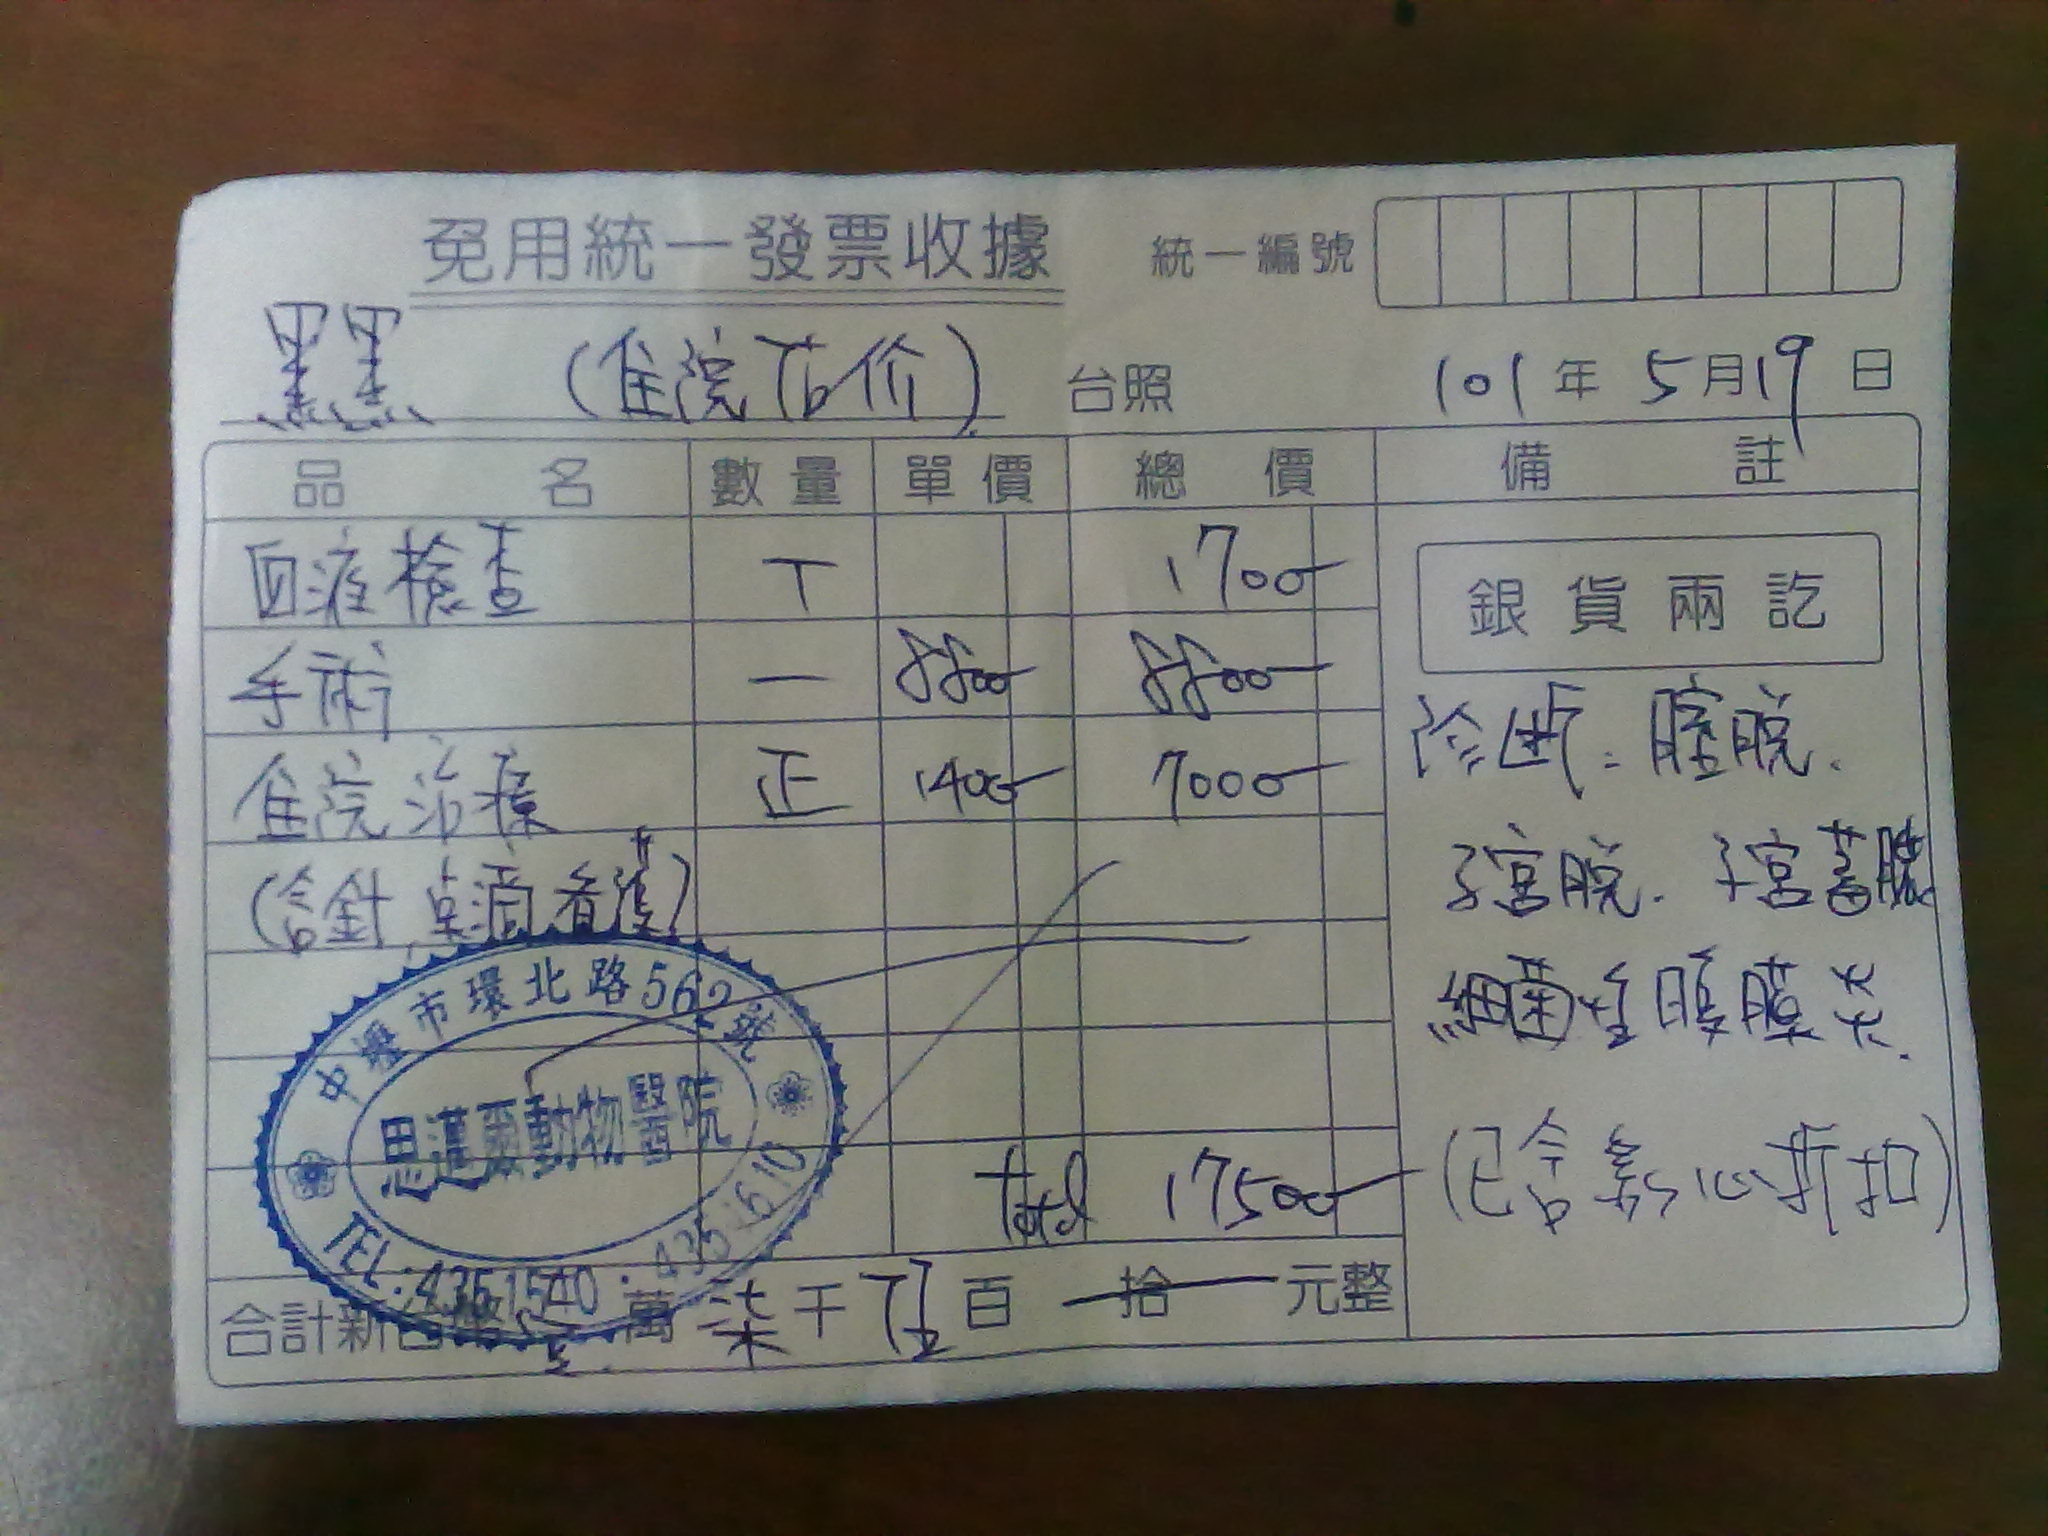 免用統一發票收據
統一編號
黑黑 (住院估价) 台照 101年5月19日
品名 數量 單價 總價 備註
血液檢查 丅 1700
手術 一 8800 8800
住院治療 正 1400 7000
(含針,点滴,看護)
total 17500
合計新台幣 壹萬柒千伍百拾元整
銀貨兩訖
診断:膣脱.
子宮脱.子宮蓄膿
細菌性腹膜炎.
(已含愛心折扣)
中壢市環北路562號
思邁爾動物醫院
TEL:4351540·4351610